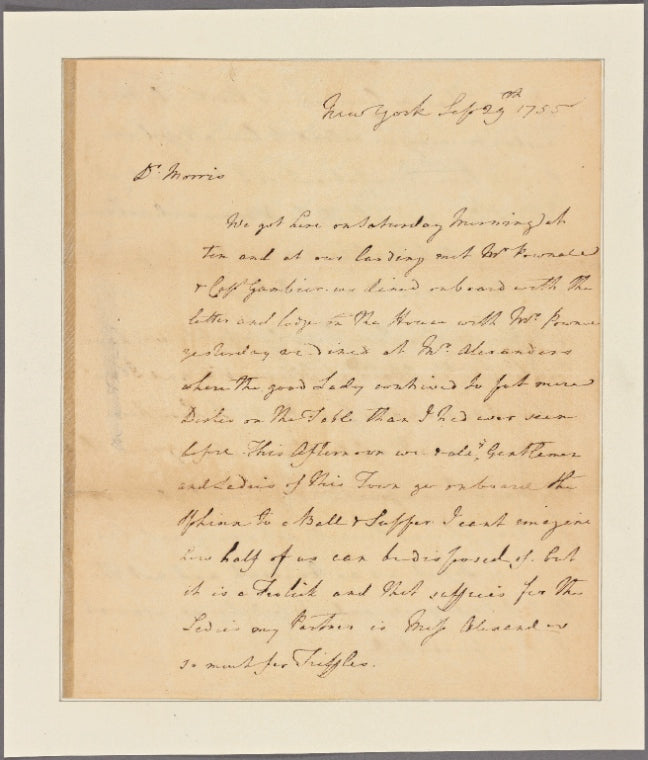 New York Sep 29th 1755
Dr. Morris
We got here on Saturday Morning at
ten and at our landing met Mr Pownall
& Capt Gambier. we dined onboard with the
latter and lodge in the House with Mr. Pownall
yesterday we dined at Mr. Alexanders
where the good Lady contrived to put more
Dishes on the Table than I had ever seen
before. This Afternoon we & all ye Gentlemen
and Ladies of this Town go onboard the
Sphinx to a Ball & Supper I cant imagine
how half of us can be disposed of. but
it is a Frolick and that suffices for the
Ladies my Partner is Miss Alexander
so much for Triffles.